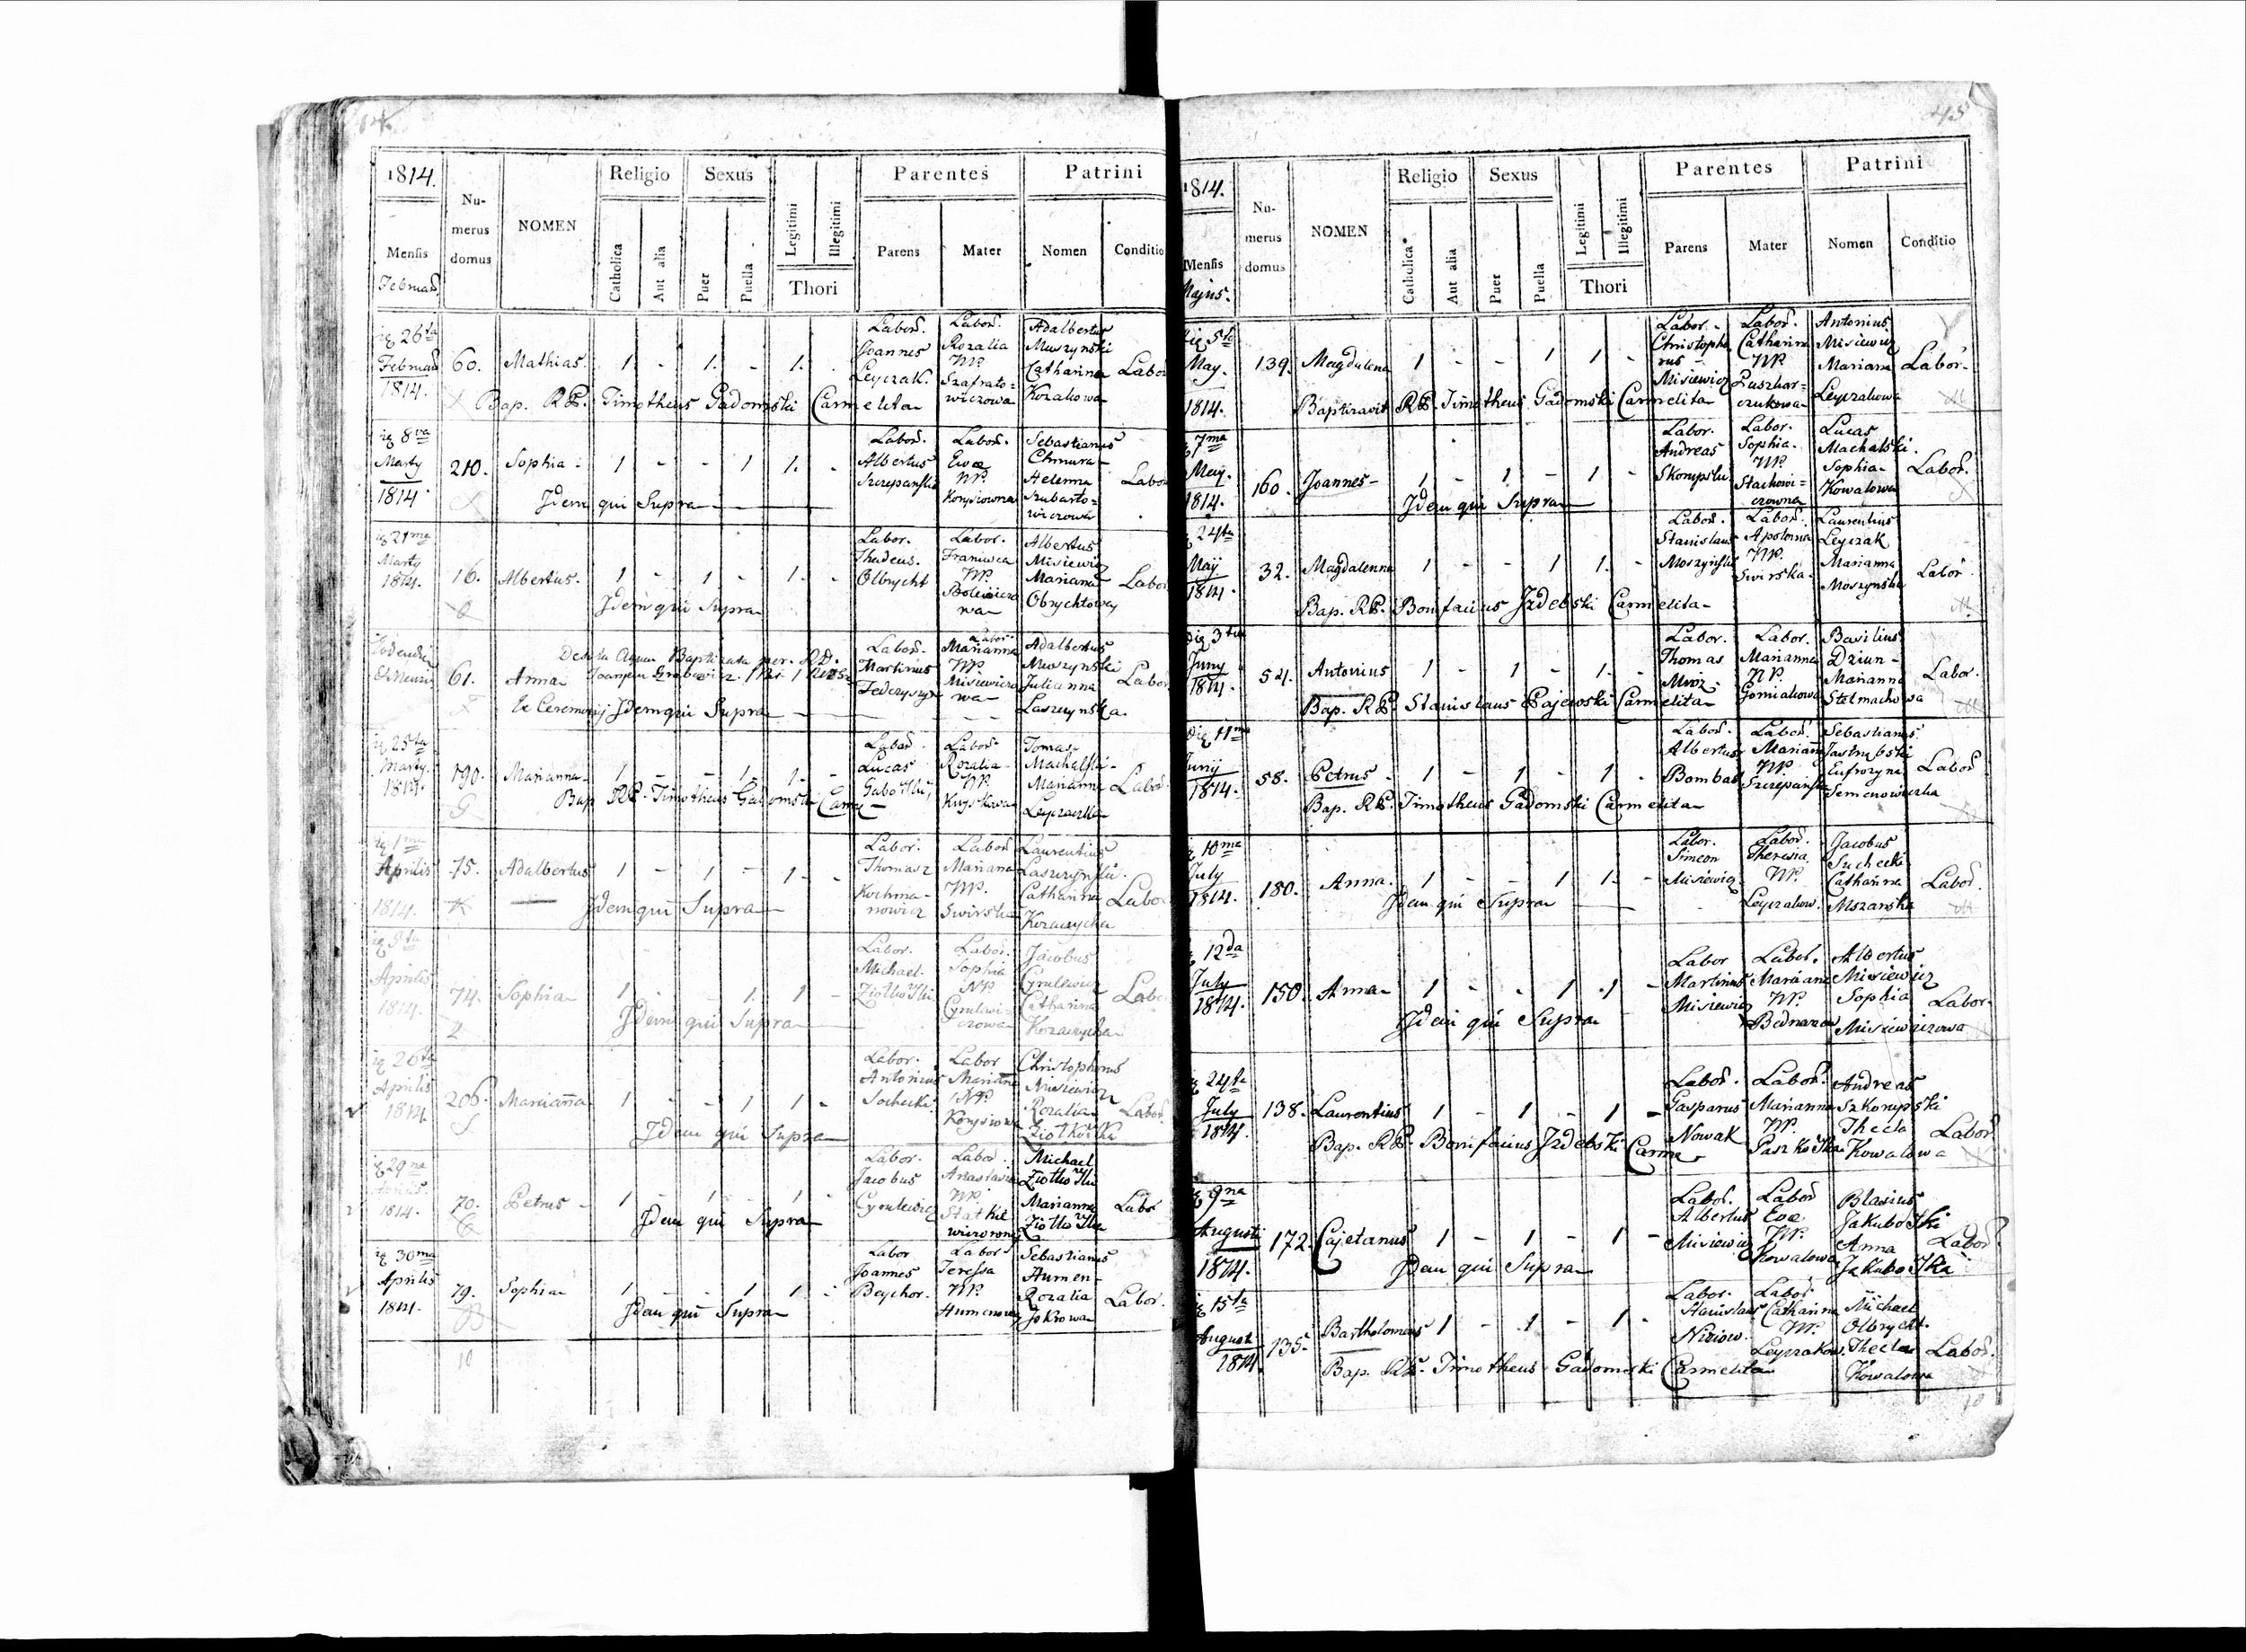 64.
1814.
Nu-
merus
domus
NOMEN
Religio
Sexus
Legitimi
Illegitimi
Parentes
Patrini
Mensis
Catholica
Aut alia
Puer
Puella
Thori
Parens
Mater
Nomen
Conditio
26ta
Februar
1814.
60.
Mathias.
1.
-
1.
-
1.
Labor.
Joannes
Leyczak.
Labor.
Rozalia
NP.
Szafrato=
wiczowa
Adalbertus
Muszynski
Catharina
Kozakowa
Bap. RP. Timotheus Gadomski Carmelita
8va
Marty
1814.
210.
Sophia
1
-
-
1
1.
-
Labor.
Albertus
Labor.
Eva
NP.
Sebastianus
Chmura
Helenna
Szubarto=
wiczowa
Idem qui Supra
21ma
Marty
1814.
16.
Albertus.
1
-
1
-
1.
-
Labor.
Thadeus.
Olbrycht
Labor.
NP.
Albertus
Misiewicz
Marianna
Idem qui Supra
61.
Anna
Labor.
Martinus
Labor.
Marianna
NP.
Misiewiczo
wa
Adalbertus
Muszynski
Julianna
Laszynska.
Idem qui Supra
25ta
Marty.
1814.
190.
Marianna
1
-
-
1.
1.
-
Labor.
Lucas
Labor.
Rozalia
NP.
Tomas
Machalski
Marianna
Bap RP. Timotheus Gadomski Carm
1ma
Aprilis
1814.
75.
Adalbertus
1
-
1
-
1.
-
Labor.
Thomasz
Kochma-
nowicz
Labor
Marianna
NP.
Swirska
Laurentius
Laszynski.
Catharina
Kozaczycha
Idem qui Supra
Aprilis
1814.
74.
Sophia
1
-
-
1.
1
-
Labor.
Michael.
Labor.
Sophia
NP
Cyrulewi-
czowa
Jacobus
Cyrulewicz
Catharina
Kozaczycha
Idem qui Supra
26ta
Aprilis
1814
206.
Marianna
1
-
-
1
1
-
Labor.
Antonius
Sochecki
Labor
Marianna
NP.
Christophorus
Misiewicz
Rozalia
Labor.
Idem qui Supra
29na
Aprilis
1814.
70.
Petrus
1
-
1
-
1
-
Labor.
Jacobus
Cyrulewicz
Labor.
Anastasia
NP.
Michael
Marianna
Idem qui Supra
30ma
Aprilis
1814.
79.
Sophia
1
-
-
1
1
-
Labor
Joannes
Beychor.
Labor
Teressa
NP.
Sebastianus
Humen-
Rozalia
Labor.
Idem qui Supra
10
45
1814.
Nu-
merus
domus
NOMEN
Religio
Sexus
Legitimi
Illegitimi
Parentes
Patrini
Mensis
Majus.
Catholica
Aut alia
Puer
Puella
Thori
Parens
Mater
Nomen
Conditio
5ta
May.
1814.
139.
Magdalena
1
-
-
1
1
-
Labor.
Christopho
rus
Misiewicz
Labor.
Catharina
NP.
Puszkar=
czukowa
Antonius
Misiewicz
Mariana
Leyczakowa
Labor.
Baptizavit RP. Timotheus Gadomski Carmelita
7ma
May.
1814.
160.
Joannes
1
-
1
-
1
-
Labor.
Andreas
Skorupski
Labor.
Sophia
NP.
Stachowi-
czowna
Lucas
Machalski.
Sophia
Kowalowa
Labor.
Idem qui Supra
24ta
May
1814.
32.
Magdalenna
1
-
-
1
1.
-
Labor.
Stanislaus
Moszynski
Labor.
Apolonia
NP.
Swirska
Laurentius
Leyczak
Marianna
Moszynska
Labor
Bap. RP. Bonifacius Izdebski Carmelita
3tia
Juny
1814.
54.
Antonius
1
-
1
-
1.
-
Labor.
Thomas
Mroz
Labor.
Marianna
NP.
Gorniakowa
Basilius
Dziun-
Marianna
Stelmachowa
Labor.
Bap. RP. Stanislaus Pajewski Carmelita
11ma
Juny
1814.
58.
Petrus
1
-
1
-
1
-
Labor.
Albertus
Bombas
Labor.
Mariana
NP
Szczepanska
Sebastianus
Jastrzbski
Eufrozyna
Semenowiczka
Labor
Bap. RP. Timotheus Gadomski Carmelita
10ma
July
1814.
180.
Anna.
1
-
-
1
1.
-
Labor.
Simeon
Misiewicz
Labor.
Theresia
NP.
Leyczakow.
Jacobus
Suchecki
Catharina
Mszanska
Labor.
Idem qui Supra
12da
July
1814.
150.
Anna
1
-
-
1
1
-
Labor
Martinus
Misiewicz
Labor.
Mariana
NP.
Bednarow
Albertus
Misiewicz
Sophia
Misiewiczowa
Labor.
Idem qui Supra
24ta
July
1814.
138.
Laurentius
1
-
1
-
1
-
Labor.
Gasparus
Nowak
Labor.
Marianna
NP.
Andreas
Szkorupski
Thecla
Kowalowa
Labor.
Bap. RP. Bonifacius Izdebski Carme
9na
Augusti
1814.
172.
Cajetanus
1
-
1
-
1
-
Labor.
Albertus
Misiewicz
Labor
Eva
NP.
Kowalowa
Blasius
Jakubowski
Anna
Jakubowska
Labor.
Idem qui Supra
15ta
August
1814.
135.
Bartholomeus
1
-
1
-
1
-
Labor.
Stanislaus
Niziow.
Labor
Catharina
NP.
Leyczakow.
Michael
Olbrycht.
Thecla
Kowalowa
Labor.
Bap. RP. Timotheus Gadomski Carmelita
10